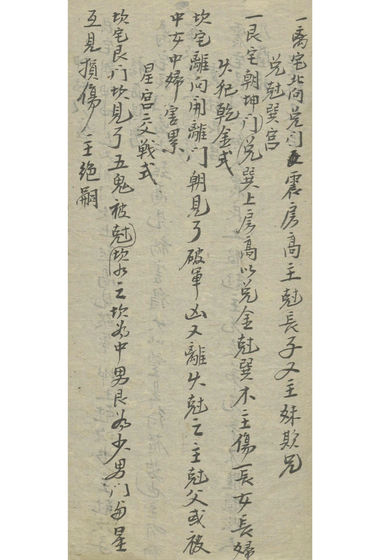 一离宅北向兑门震房高主尅長子又主妹欺兄
兑尅巽宫
一艮宅朝坤门兑巽上房高以兑金尅巽木主傷長女長婦
火犯乾金式
坎宅離向開離门朝見了破軍凶又離火尅之主尅父或被
中女中婦害累
星宫交戰式
坎宅艮门坎見了五鬼被尅坎水之坎為中男艮為少男门与星
互見損傷主绝嗣